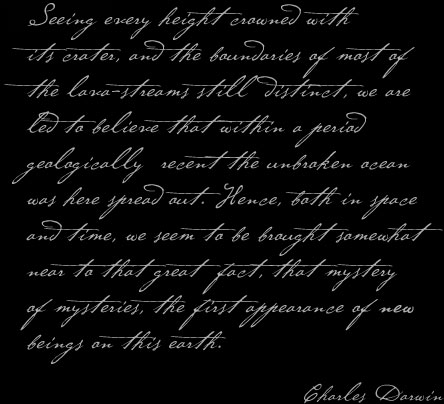 Seeing every height crowned with
its crater, and the boundaries of most of
the lava-streams still distinct, we are
led to believe that within a period
geologically recent the unbroken ocean
was here spread out. Hence, both in space
and time, we seem to be brought somewhat
near to that great fact, that mystery
of mysteries, the first appearance of new
beings on this earth.
Charles Darwin